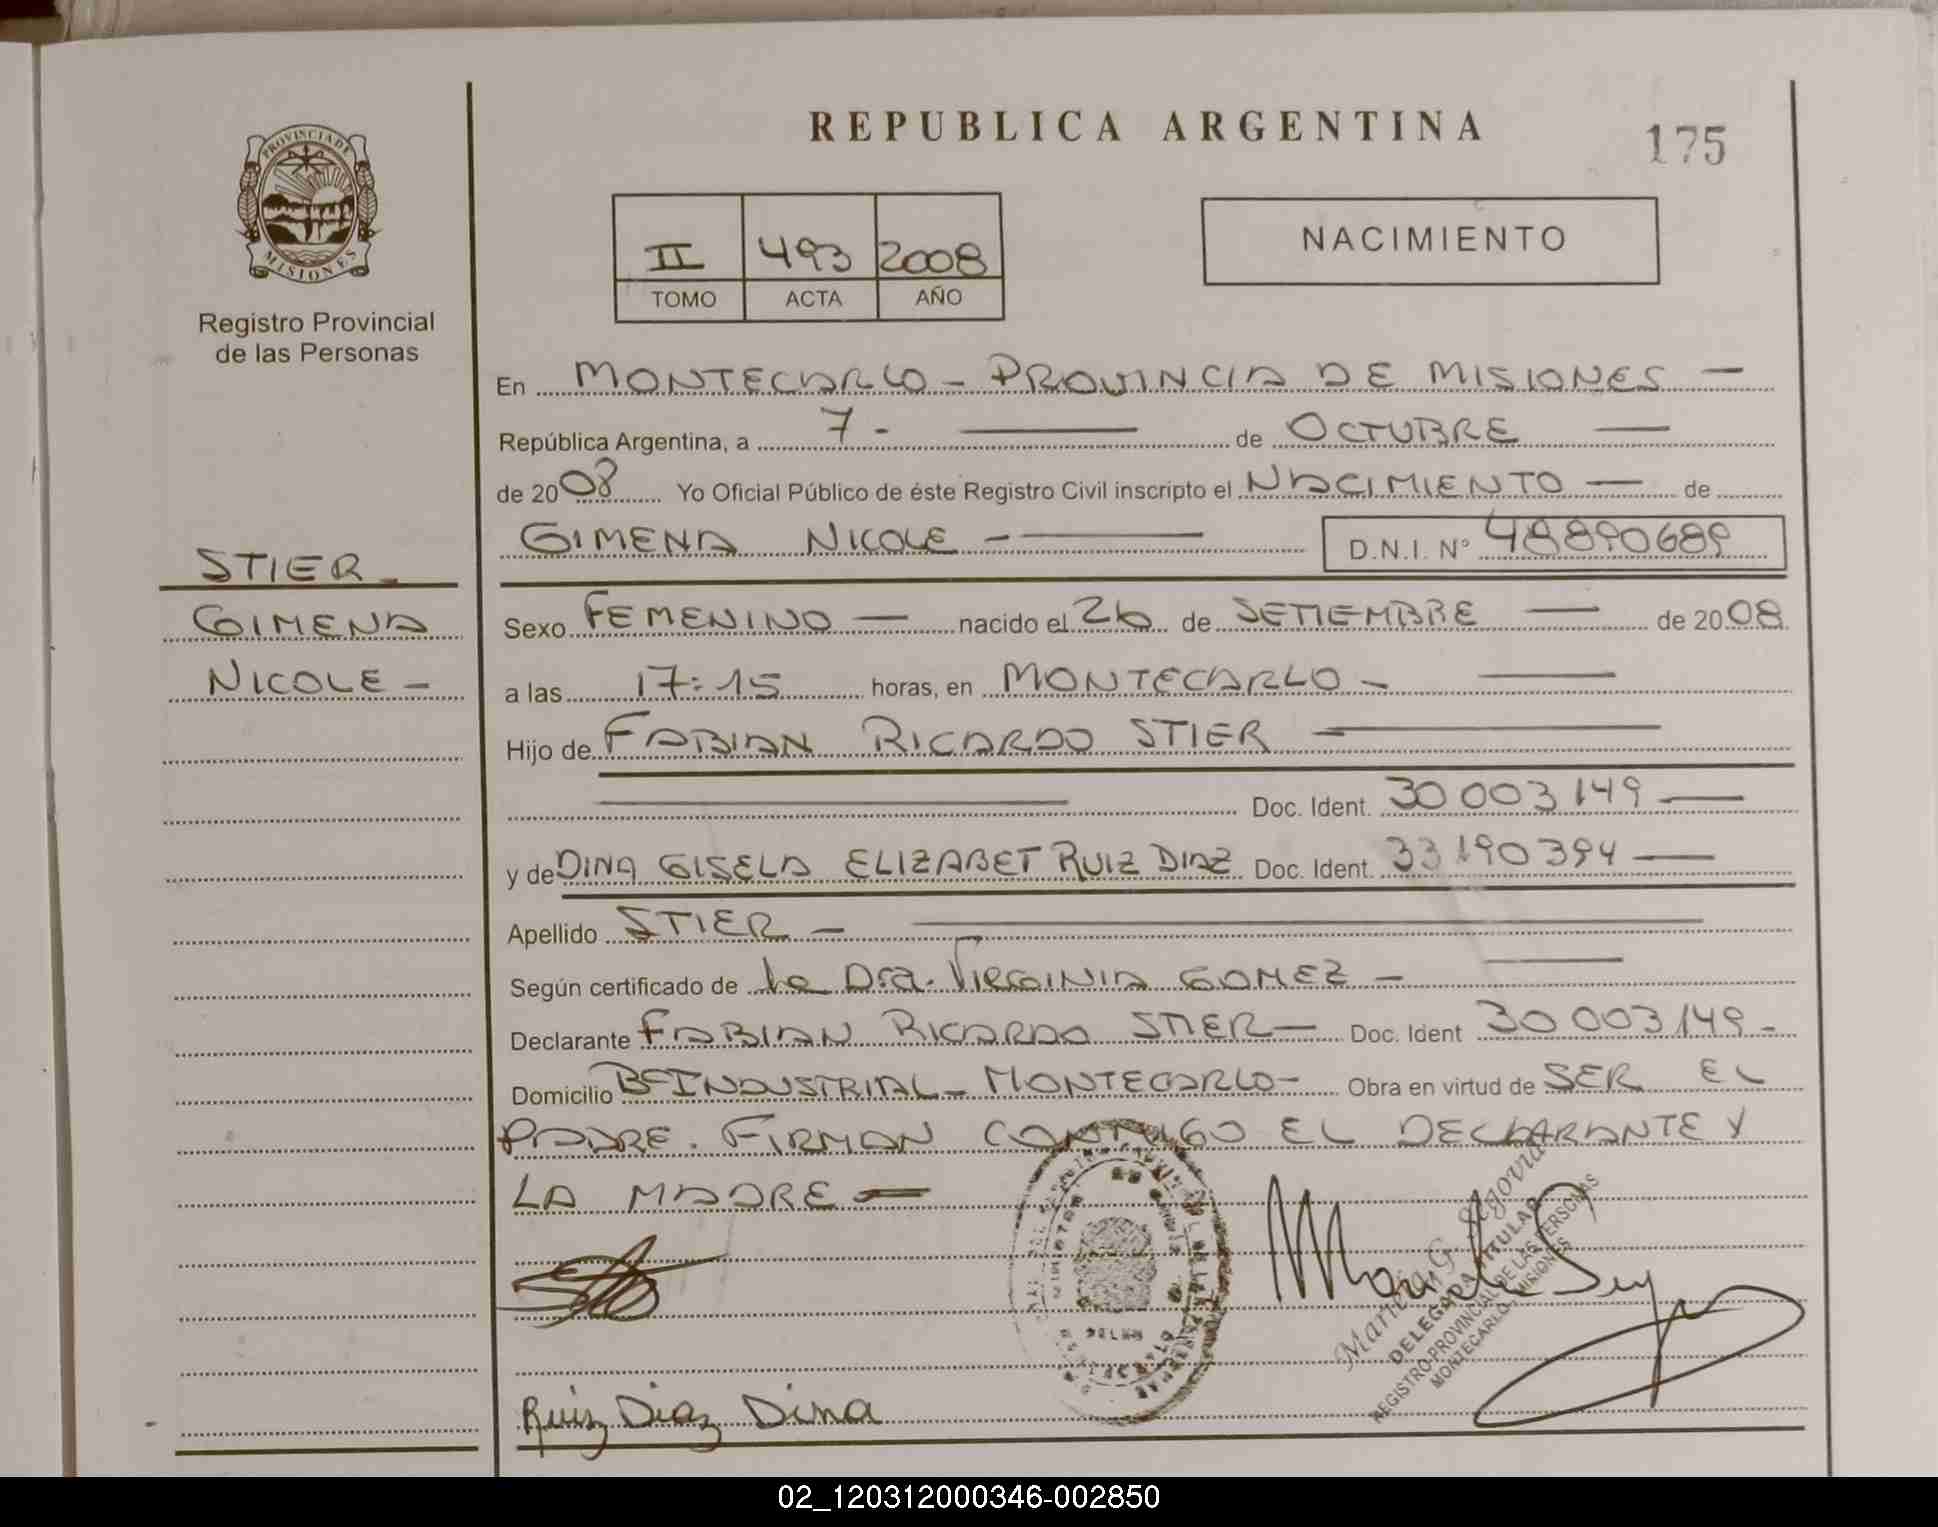 REPUBLICA ARGENTINA
175
PROVINCIA DE
MISIONES
Registro Provincial
de las Personas
II 493 2008
TOMO ACTA AÑO
NACIMIENTO
En MONTECARLO - PROVINCIA DE MISIONES —
República Argentina, a 7 - — de OCTUBRE —
de 2008 Yo Oficial Público de éste Registro Civil inscripto el NACIMIENTO — de
GIMENA NICOLE - — D.N.I. Nº 48890689
STIER -
GIMENA
NICOLE -
Sexo FEMENINO — nacido el 26 de SETIEMBRE — de 2008
a las 17:15 horas, en MONTECARLO - —
Hijo de FABIAN RICARDO STIER —
— Doc. Ident. 30 003 149 —
y de DINA GISELA ELIZABET RUIZ DIAZ Doc. Ident. 33 190 394 —
Apellido STIER - —
Según certificado de la Dra. VIRGINIA GOMEZ - —
Declarante FABIAN RICARDO STIER — Doc. Ident 30 003 149 -
Domicilio Bº INDUSTRIAL - MONTECARLO - Obra en virtud de SER EL
PADRE. FIRMAN CONMIGO EL DECLARANTE Y
LA MADRE —
Segovia
DELEGADA TITULAR
REGISTRO PROVINCIAL DE LAS PERSONAS
MONTECARLO, MISIONES
Ruiz Diaz Dina
02_120312000346-002850